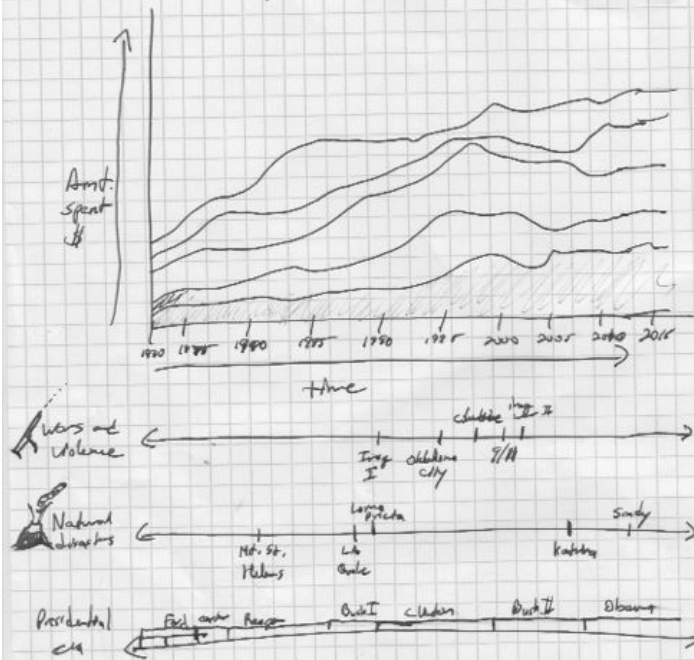 Amt.
spent
$
1970 1975 1980 1985 1990 1995 2000 2005 2010 2015
time
Wars and
Violence
Iraq
I
Oklahoma
City
9/11
Natural
disasters
Mt. St.
Helens
LA
Quake
Loma
Prieta
Katrina
Sandy
Presidential
Ford Carter Reagan Bush I Clinton Bush II Obama